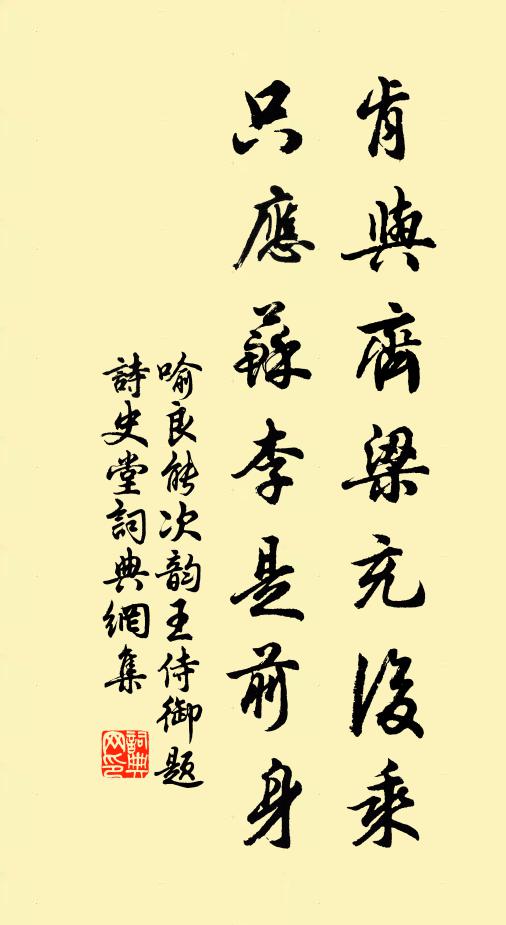 肯與齊梁充後乘
只應蘇李是前身
喻良能次韵王侍御題
詩史堂詞典網集
詞典网印